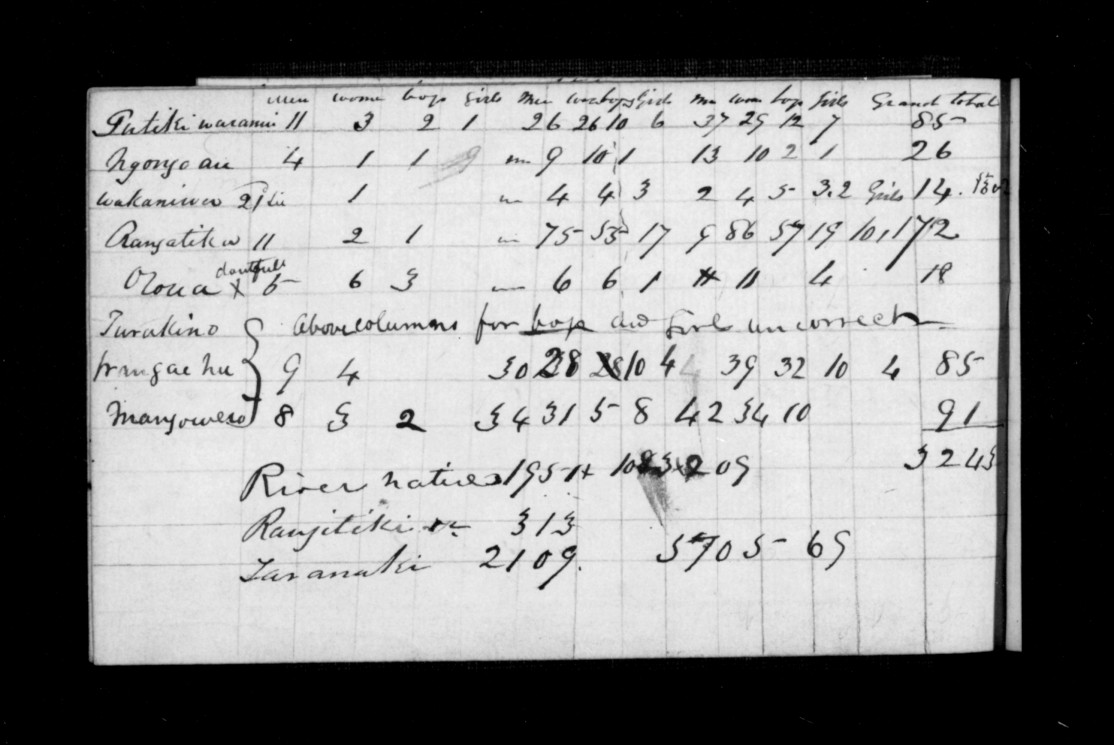 Men women boys Girls Men women boys Girls Men women boys Girls Grand total
Putiki waranui 11 3 2 1 26 26 10 6 37 29 12 7 85
Ngongo au 4 1 1 9 10 1 13 10 2 1 26
wakaniwa 2 1 4 4 3 2 4 5 3.2 Girls 14.
Rangatika 11 2 1 75 55 17 9 86 57 19 10 172
Oroua x doutfull 5 6 3 6 6 1 11 4 18
Turakino Above columns for boys and Girls uncorrect
wangaehu 9 4 30 28 10 4 39 32 10 4 85
Mangowero 8 3 2 34 31 5 8 42 34 10 91
3243
River natives 1951 + 1083 + 209
Rangitiki 313
Taranaki 2109. 5705 69